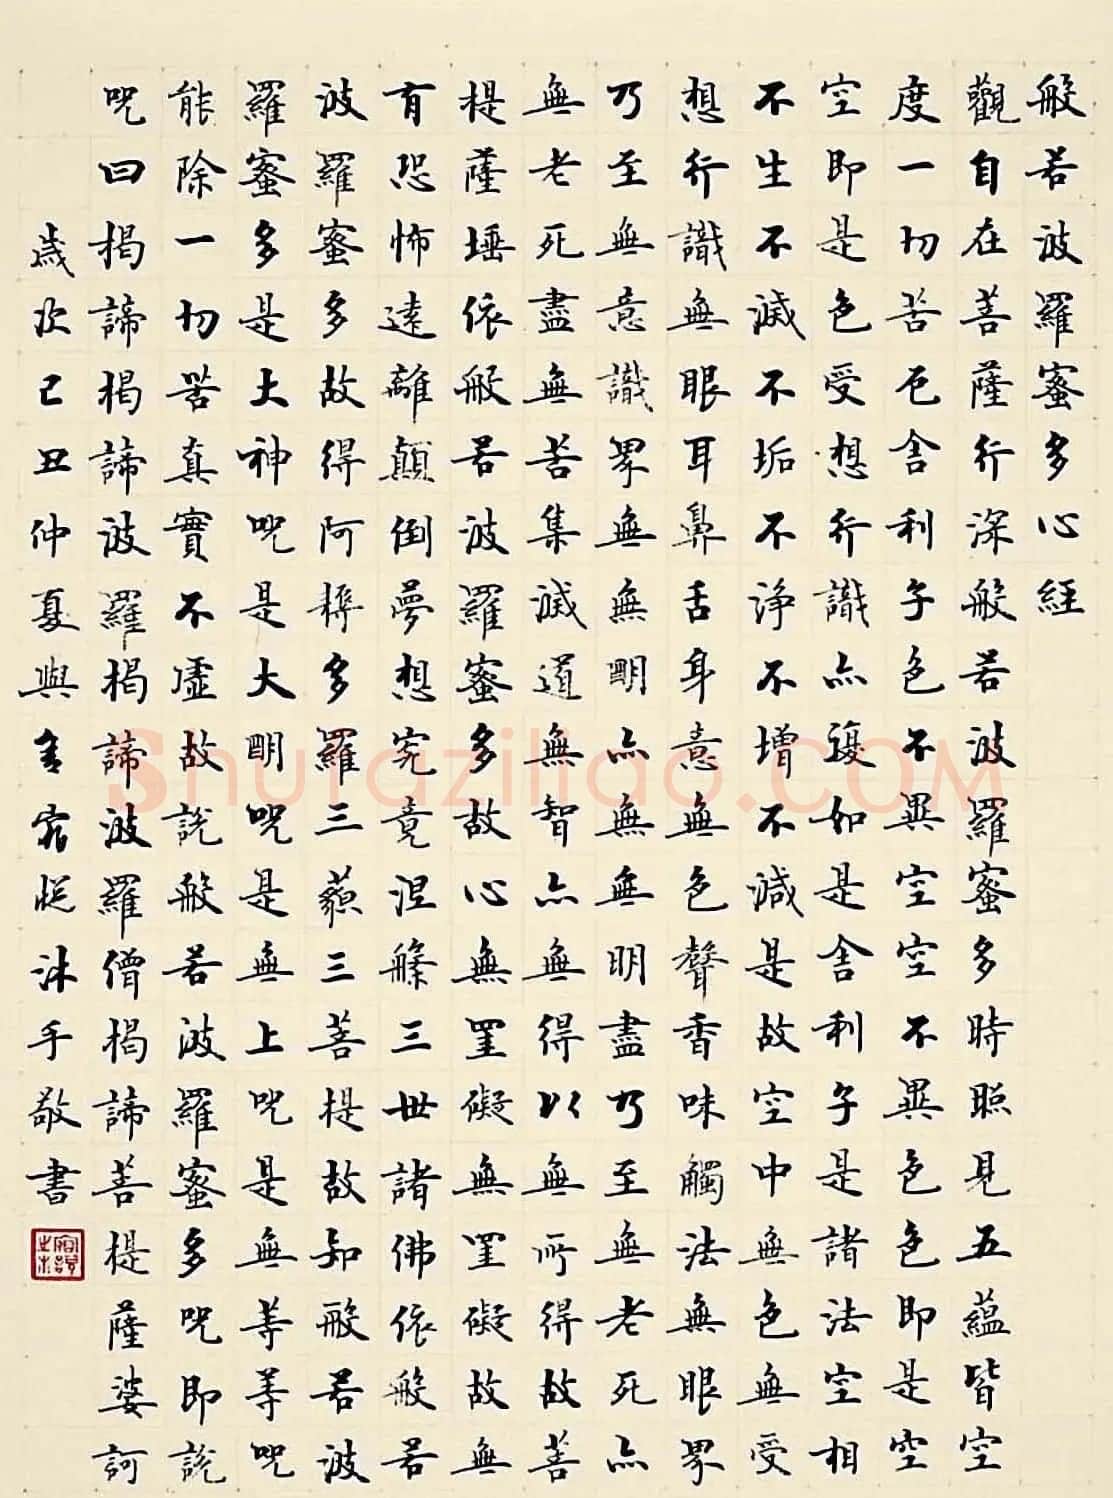 般若波羅蜜多心経
觀自在菩薩行深般若波羅蜜多時照見五蘊皆空
度一切苦厄舍利子色不異空空不異色色即是空
空即是色受想行識亦復如是舍利子是諸法空相
不生不滅不垢不淨不增不減是故空中無色無受
想行識無眼耳鼻舌身意無色聲香味觸法無眼界
乃至無意識界無無明亦無無明盡乃至無老死亦
無老死盡無苦集滅道無智亦無得以無所得故菩
提薩埵依般若波羅蜜多故心無罣礙無罣礙故無
有恐怖遠離顛倒夢想究竟涅槃三世諸佛依般若
波羅蜜多故得阿耨多羅三藐三菩提故知般若波
羅蜜多是大神呪是大明呪是無上呪是無等等呪
能除一切苦真實不虛故說般若波羅蜜多呪即說
呪曰揭諦揭諦波羅揭諦波羅僧揭諦菩提薩婆訶
歲次己丑仲夏與沐手敬書
Shufaziliao.COM